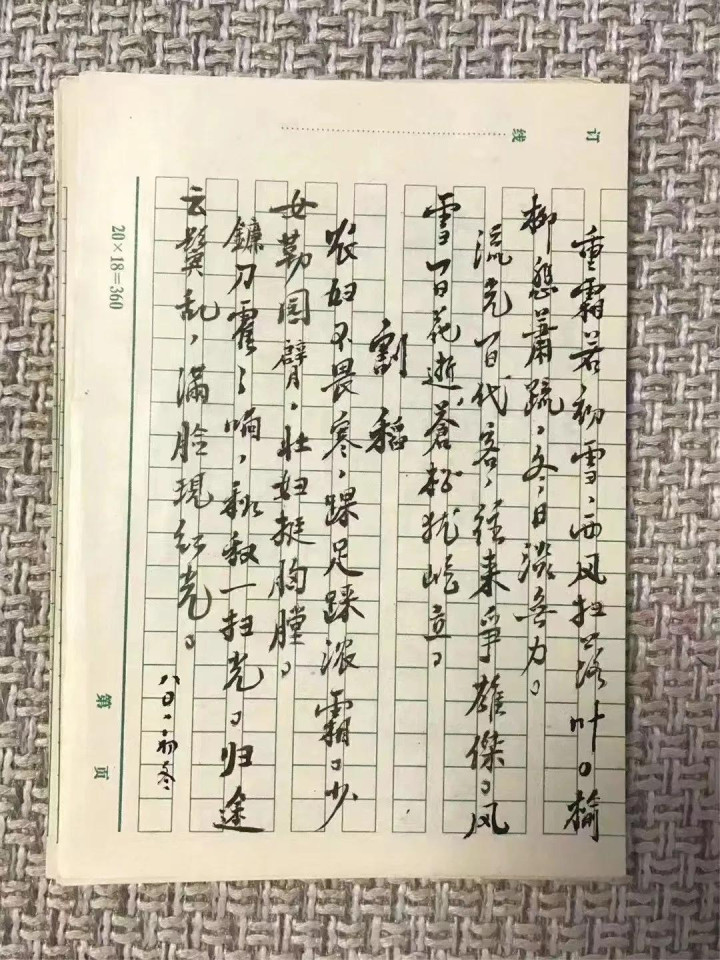 订
线
重霜若初雪、西风扫落叶。榆
柳態蕭疏、冬日淡無力。
流光百代客、往来争雄傑。风
雪百花逝、蒼松犹屹立。
割稻
农妇不畏寒、踝足踩浓霜。少
女勒圆臂、壮妇挺胸膛。
鐮刀霍霍响、秋收一扫光。归途
云鬓乱、满脸现红光。
八〇、初冬
20×18=360
第 页